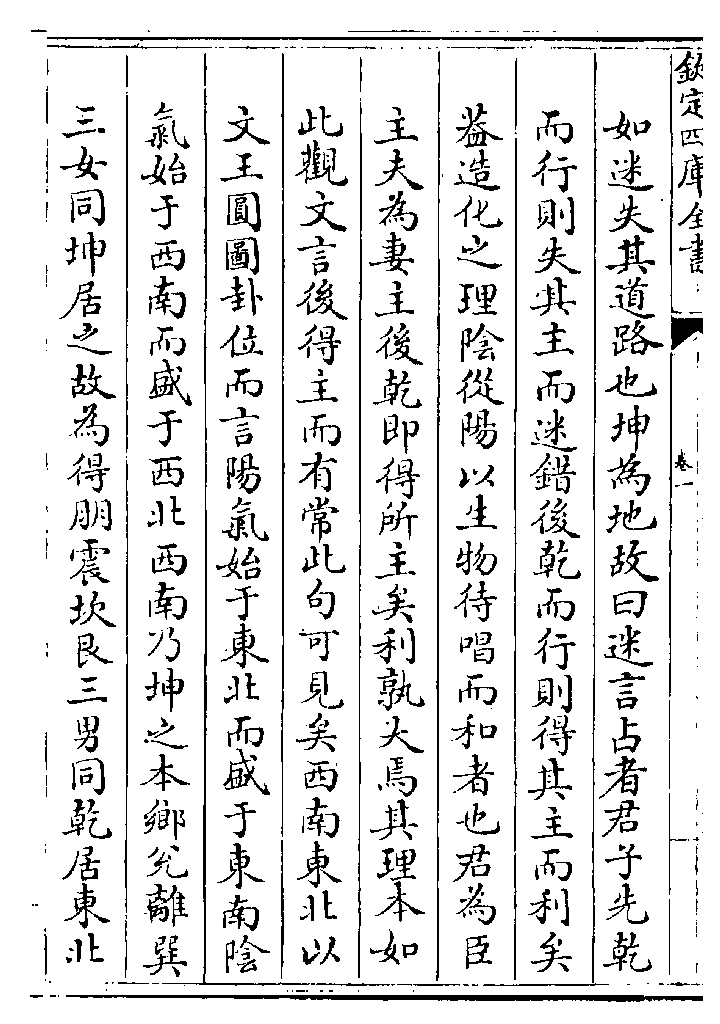 欽定四庫全書
卷一
如迷失其道路也坤為地故曰迷言占者君子先乾
而行則失其主而迷錯後乾而行則得其主而利矣
葢造化之理陰從陽以生物待唱而和者也君為臣
主夫為妻主後乾即得所主矣利孰大焉其理本如
此觀文言後得主而有常此句可見矣西南東北以
文王圓圖卦位而言陽氣始于東北而盛于東南陰
氣始于西南而盛于西北西南乃坤之本鄉兊離巽
三女同坤居之故為得朋震坎艮三男同乾居東北